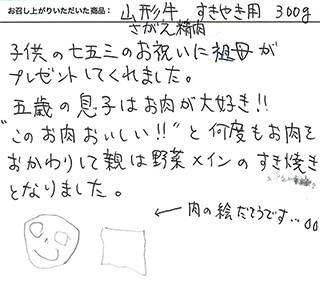 お召し上がりいただいた商品： 山形牛 すきやき用 300g
さがえ精肉
子供の七五三のお祝いに祖母が
プレゼントしてくれました。
五歳の息子はお肉が大好き!!
"このお肉おいしい!!"と何度もお肉を
おかわりして親は野菜メインのすき焼き
となりました。
←肉の絵だそうです…